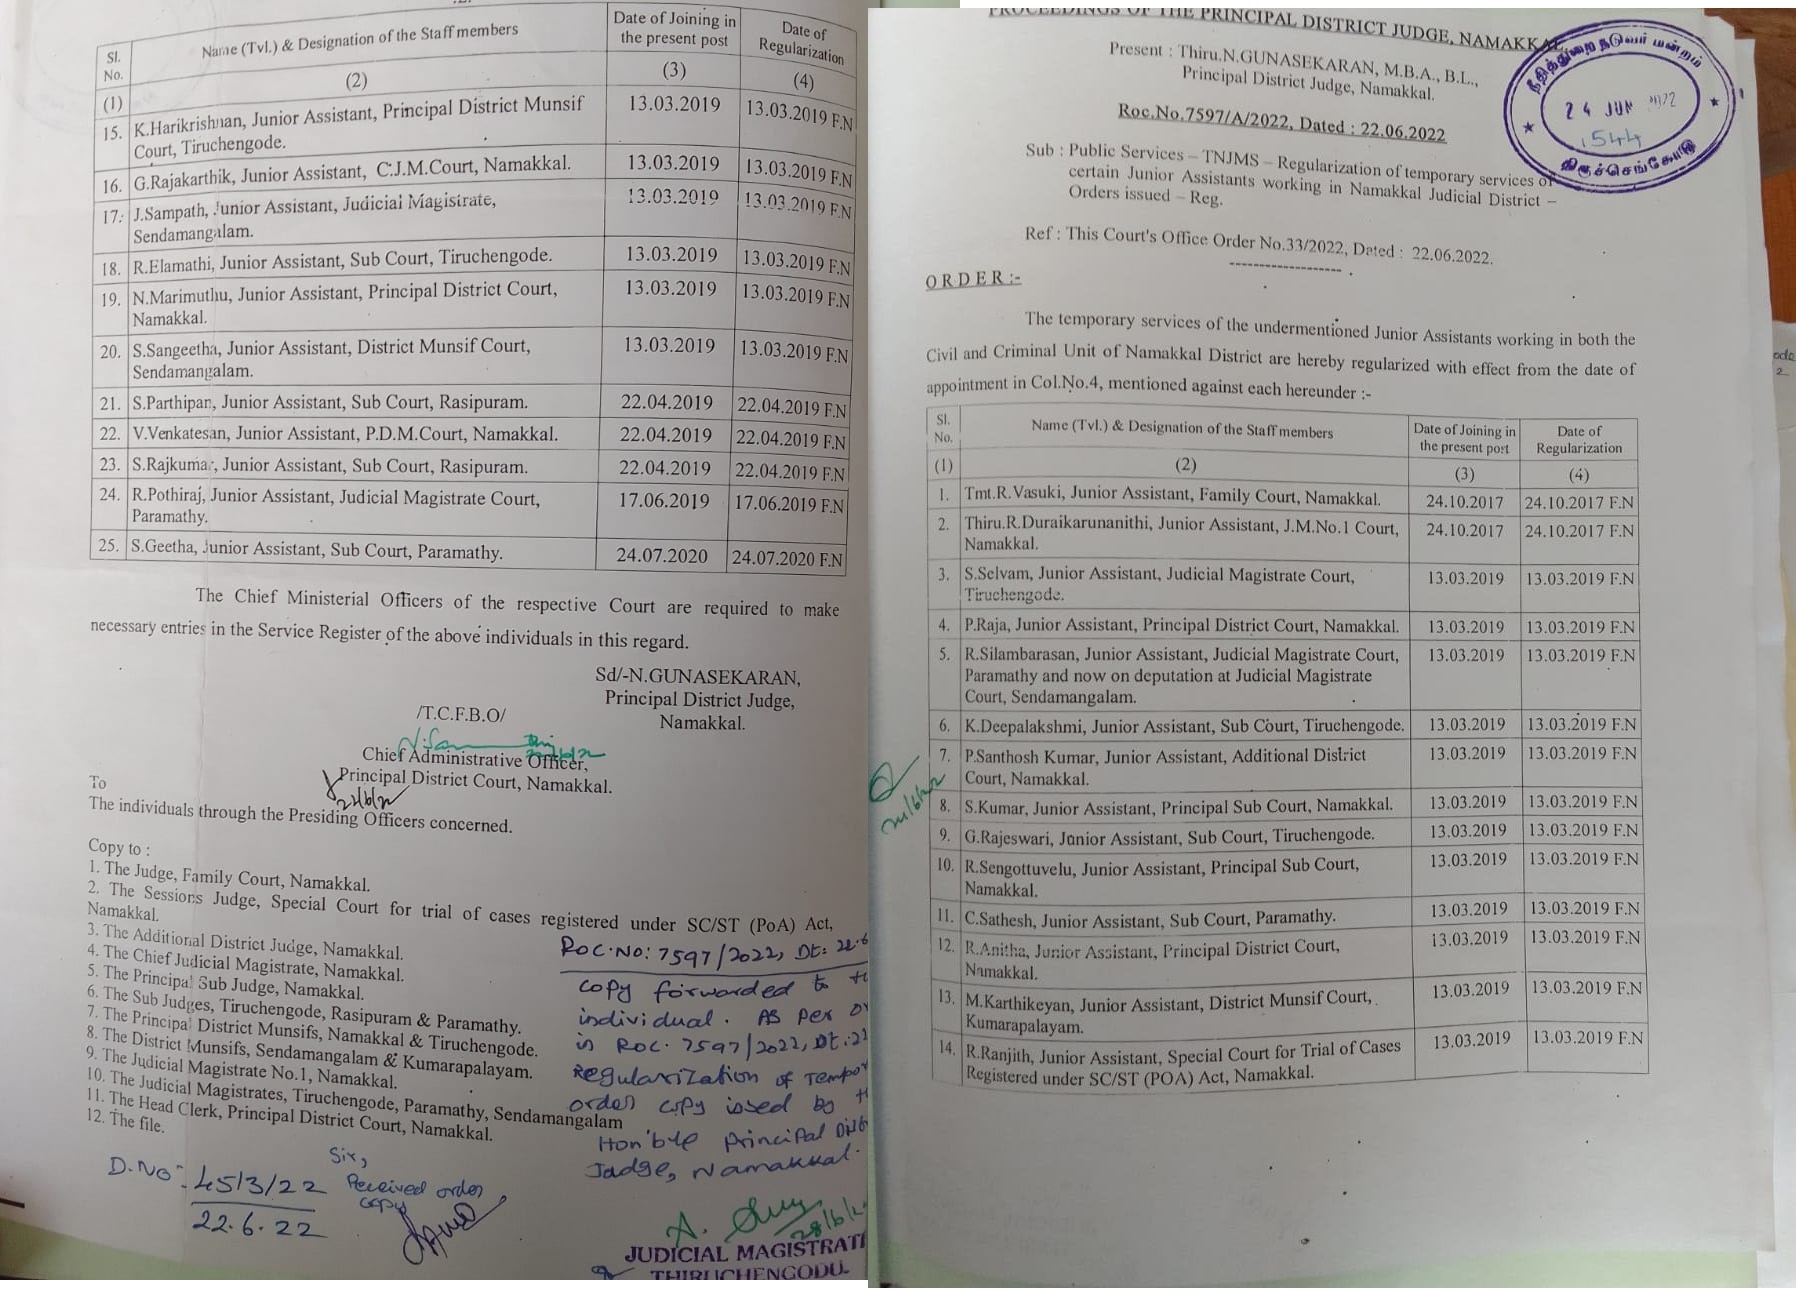 Sl. No.
Name (Tvl.) & Designation of the Staff members
Date of Joining in the present post
Date of Regularization
(1)
(2)
(3)
(4)
15. K.Harikrishnan, Junior Assistant, Principal District Munsif 13.03.2019 13.03.2019 F.N
Court, Tiruchengode.
16. G.Rajakarthik, Junior Assistant, C.J.M.Court, Namakkal. 13.03.2019 13.03.2019 F.N
17. J.Sampath, Junior Assistant, Judicial Magistrate, 13.03.2019 13.03.2019 F.N
Sendamangalam.
18. R.Elamathi, Junior Assistant, Sub Court, Tiruchengode. 13.03.2019 13.03.2019 F.N
19. N.Marimuthu, Junior Assistant, Principal District Court, 13.03.2019 13.03.2019 F.N
Namakkal.
20. S.Sangeetha, Junior Assistant, District Munsif Court, 13.03.2019 13.03.2019 F.N
Sendamangalam.
21. S.Parthipan, Junior Assistant, Sub Court, Rasipuram. 22.04.2019 22.04.2019 F.N
22. V.Venkatesan, Junior Assistant, P.D.M.Court, Namakkal. 22.04.2019 22.04.2019 F.N
23. S.Rajkumar, Junior Assistant, Sub Court, Rasipuram. 22.04.2019 22.04.2019 F.N
24. R.Pothiraj, Junior Assistant, Judicial Magistrate Court, 17.06.2019 17.06.2019 F.N
Paramathy.
25. S.Geetha, Junior Assistant, Sub Court, Paramathy. 24.07.2020 24.07.2020 F.N
The Chief Ministerial Officers of the respective Court are required to make
necessary entries in the Service Register of the above individuals in this regard.
Sd/-N.GUNASEKARAN,
Principal District Judge,
Namakkal.
/T.C.F.B.O/
Chief Administrative Officer,
Principal District Court, Namakkal.
22/6/22
To
The individuals through the Presiding Officers concerned.
Copy to :
1. The Judge, Family Court, Namakkal.
2. The Sessions Judge, Special Court for trial of cases registered under SC/ST (PoA) Act,
Namakkal.
3. The Additional District Judge, Namakkal.
4. The Chief Judicial Magistrate, Namakkal.
5. The Principal Sub Judge, Namakkal.
6. The Sub Judges, Tiruchengode, Rasipuram & Paramathy.
7. The Principal District Munsifs, Namakkal & Tiruchengode.
8. The District Munsifs, Sendamangalam & Kumarapalayam.
9. The Judicial Magistrate No.1, Namakkal.
10. The Judicial Magistrates, Tiruchengode, Paramathy, Sendamangalam
11. The Head Clerk, Principal District Court, Namakkal.
12. The file.
ROC.NO: 7597/2022, Dt: 22.6
copy forwarded to
individual. As per
in ROC. 7597/2022, Dt.
Regularization of
order copy issed by
Hon'ble principal
Jadge, Namakkal.
D.NO: 4513/22
22.6.22
Sir,
Received order
copy
A.
28/6/
JUDICIAL MAGISTRATE
THIRUCHENGODU.
PROCEEDINGS OF THE PRINCIPAL DISTRICT JUDGE, NAMAKKAL.
Present : Thiru.N.GUNASEKARAN, M.B.A., B.L.,
Principal District Judge, Namakkal.
Roc.No.7597/A/2022, Dated : 22.06.2022
நீதித்துறை நடுவர் மன்றம்
24 JUN 2022
1544
திருச்செங்கோடு
Sub : Public Services – TNJMS – Regularization of temporary services of
certain Junior Assistants working in Namakkal Judicial District –
Orders issued – Reg.
Ref : This Court's Office Order No.33/2022, Dated : 22.06.2022.
-------------------
O R D E R :-
The temporary services of the undermentioned Junior Assistants working in both the
Civil and Criminal Unit of Namakkal District are hereby regularized with effect from the date of
appointment in Col.No.4, mentioned against each hereunder :-
Sl. No.
Name (Tvl.) & Designation of the Staff members
Date of Joining in the present post
Date of Regularization
(1)
(2)
(3)
(4)
1. Tmt.R.Vasuki, Junior Assistant, Family Court, Namakkal. 24.10.2017 24.10.2017 F.N
2. Thiru.R.Duraikarunanithi, Junior Assistant, J.M.No.1 Court, 24.10.2017 24.10.2017 F.N
Namakkal.
3. S.Selvam, Junior Assistant, Judicial Magistrate Court, 13.03.2019 13.03.2019 F.N
Tiruchengode.
4. P.Raja, Junior Assistant, Principal District Court, Namakkal. 13.03.2019 13.03.2019 F.N
5. R.Silambarasan, Junior Assistant, Judicial Magistrate Court, 13.03.2019 13.03.2019 F.N
Paramathy and now on deputation at Judicial Magistrate
Court, Sendamangalam.
6. K.Deepalakshmi, Junior Assistant, Sub Court, Tiruchengode. 13.03.2019 13.03.2019 F.N
7. P.Santhosh Kumar, Junior Assistant, Additional District 13.03.2019 13.03.2019 F.N
Court, Namakkal.
8. S.Kumar, Junior Assistant, Principal Sub Court, Namakkal. 13.03.2019 13.03.2019 F.N
9. G.Rajeswari, Junior Assistant, Sub Court, Tiruchengode. 13.03.2019 13.03.2019 F.N
10. R.Sengottuvelu, Junior Assistant, Principal Sub Court, 13.03.2019 13.03.2019 F.N
Namakkal.
11. C.Sathesh, Junior Assistant, Sub Court, Paramathy. 13.03.2019 13.03.2019 F.N
12. R.Anitha, Junior Assistant, Principal District Court, 13.03.2019 13.03.2019 F.N
Namakkal.
13. M.Karthikeyan, Junior Assistant, District Munsif Court, 13.03.2019 13.03.2019 F.N
Kumarapalayam.
14. R.Ranjith, Junior Assistant, Special Court for Trial of Cases 13.03.2019 13.03.2019 F.N
Registered under SC/ST (POA) Act, Namakkal.